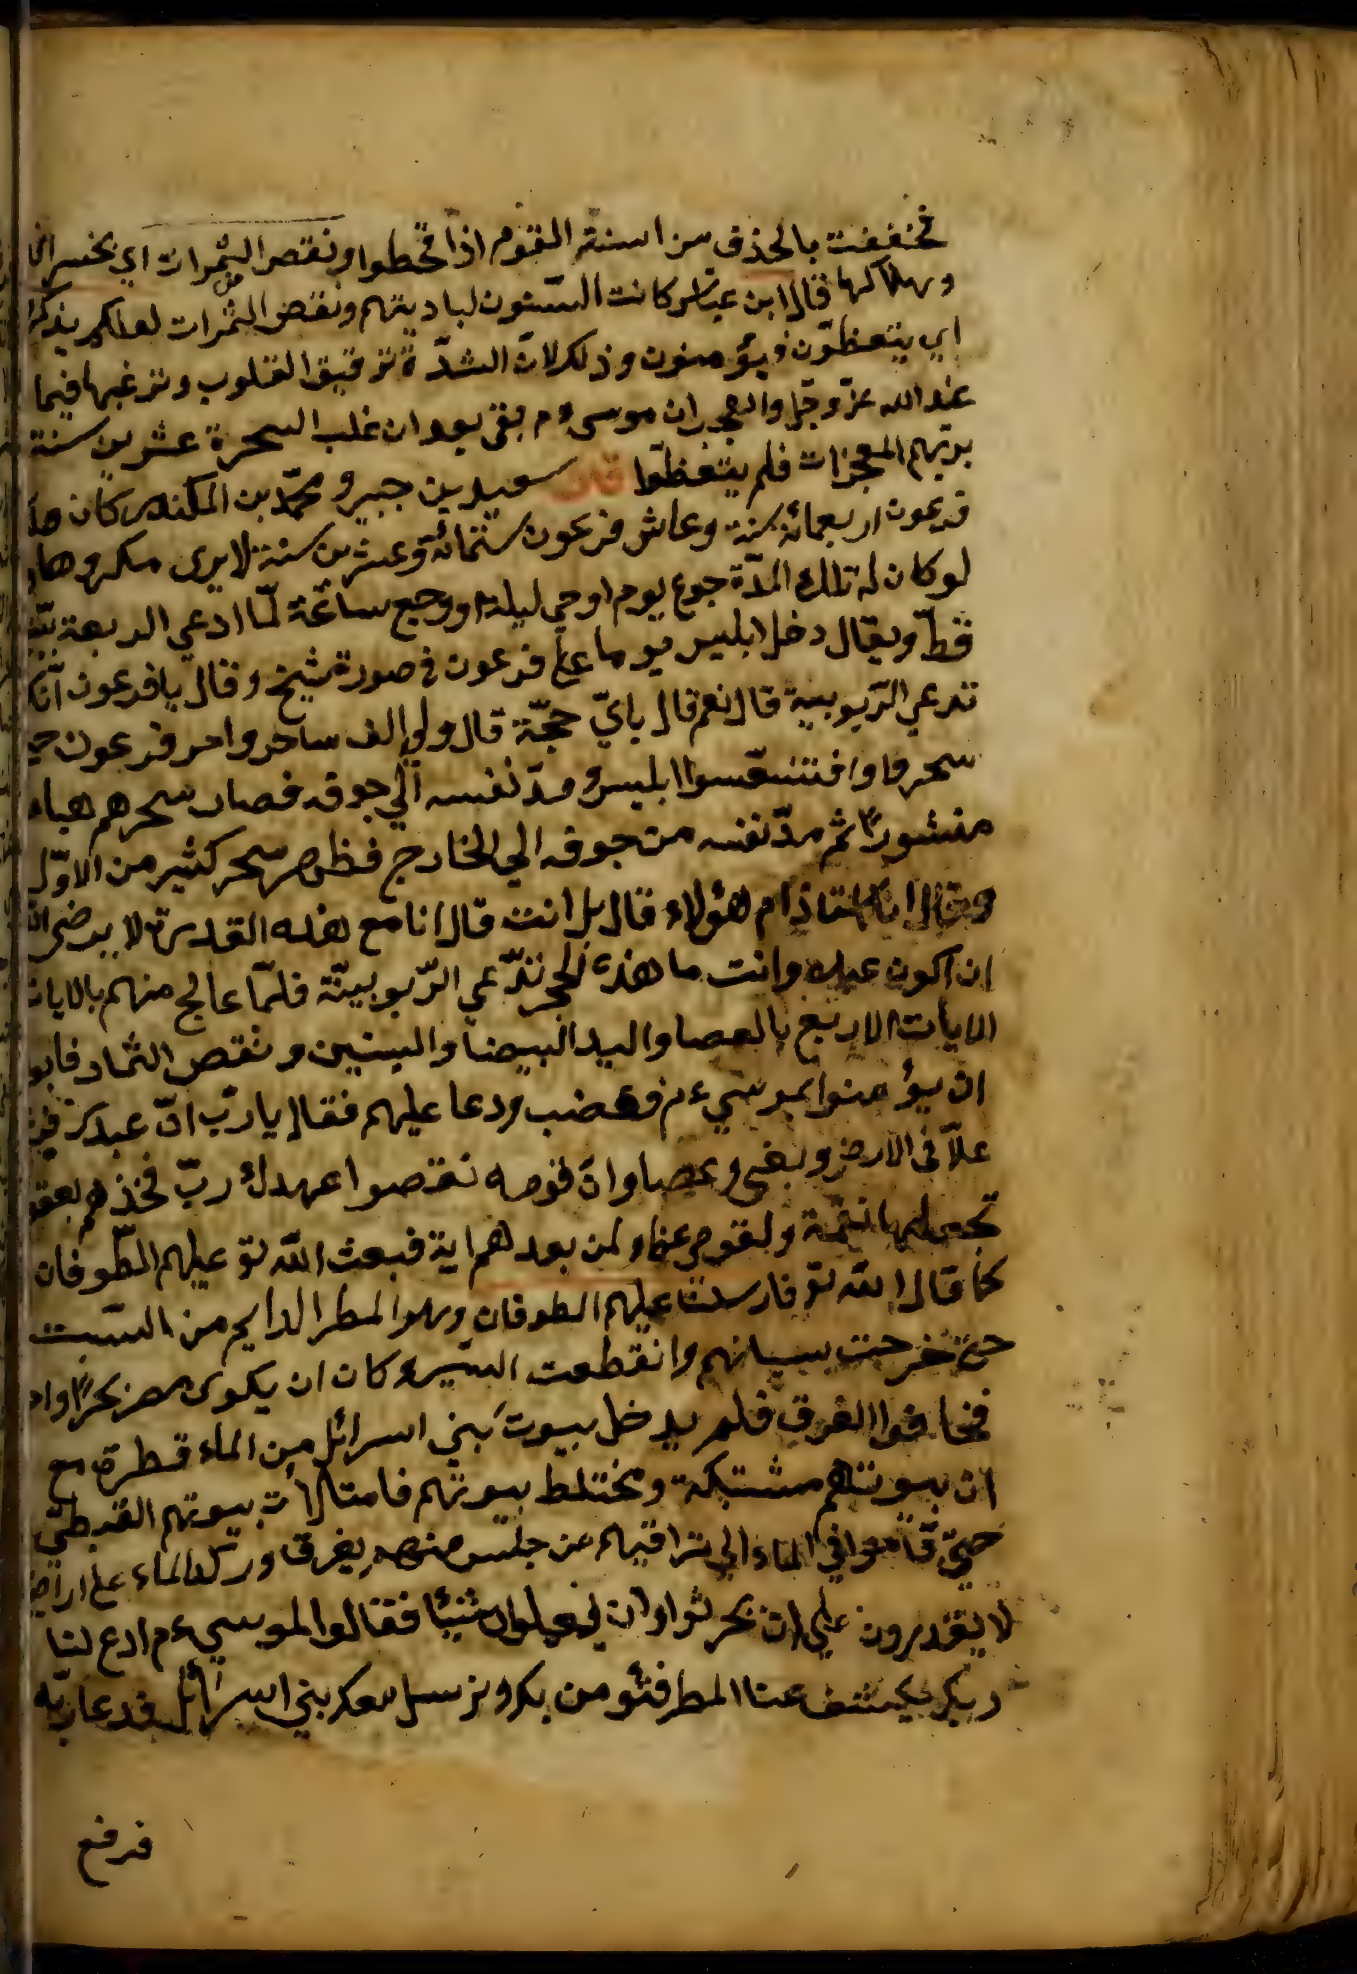 فخففت بالحذف من اسنة القوم اذا قحطوا ونقص الثمرات اي بخسر
وبهلاكها قال ابن عباس كانت السنون لباديتهم ونقص من الثمرات لعلكم
اي يتعظون فيؤمنون وذلك لان الشدة ترقيق القلوب وترغبها فيما
عند الله عز وجل والعجب ان موسى ءم بقي بعد ان غلب السحرة عشرين سنة
يريهم المعجزات فلم يتعظوا قال سعيد بن جبير ومحمد بن المكندر كان
فرعون اربعمائة سنة وعاش فرعون ستمائة وعشرين سنة لا يرى مكروها
لو كان له تلك المدة جوع يوم او حمى ليلة او وجع ساعة لما ادعي الربعة
قط ويقال دخل ابليس يوما على فرعون في صورة شيخ وقال يا فرعون انك
تدعي الربوبية قال نعم قال باي حجة قال ولي الف ساحر وامر فرعون
سحرة ابليس ومد نفسه الي جوفه فصار سحرهم هباء
منشورا ثم مد نفسه من جوفه الي الخارج فظهر سحر كثير من الاول
وقال ام هؤلاء قال بل انت قال انا مع هذه القدرة لا يرضى
ان اكون عبده وانت ما هذه تدعي الربوبية فلما عالج منهم بالايات
الايات الاربع بالعصا واليد البيضا والسنين ونقص الثمار فابو
ان يؤمنوا بموسي ءم فغضب ودعا عليهم فقال يا رب ان عبدك
علا في الارض وبغى وعصا وان قومه نقصوا عهدك رب فخذهم
تجعلها نقمة ولقومي عظة ولمن بعدهم اية فبعث الله تع عليهم الطوفان
كما قال الله تع فارسلنا عليهم الطوفان وهو المطر الدايم من السبت
حتى خرجت وانقطعت السير وكان ان يكون مصر بحرا
فخافوا الغرق فلم يدخل بيوت بني اسرائل من الماء قطرة مع
ان بيوتهم مشتبكة ومختلط بيوتهم فامتلات بيوتهم القبطي
حتي قاموا في الماء الي تراقيهم من جلس منهم يغرق وركد الماء على
لا يقدرون علي ان يحرثوا وان يفعلوا شيئا فقالوا لموسي ءم ادع لنا
ربك يكشف عنا المطر فنؤمن بك ونرسل معك بني اسرائل فدعا ربه
فرفع